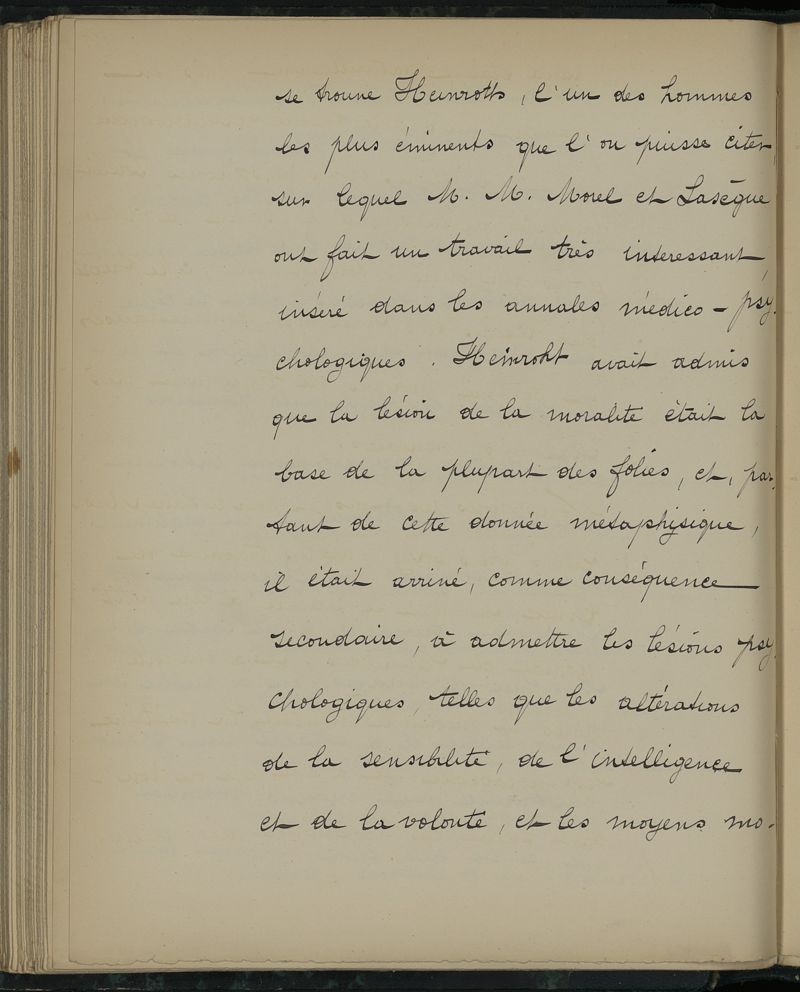 se trouve Heinroth, l'un des hommes
les plus éminents que l'on puisse citer,
sur lequel M. M. Morel et Lasègue
ont fait un travail très intéressant,
inséré dans les annales médico-psy-
chologiques. Heinroht avait admis
que la lésion de la moralité était la
base de la plupart des folies, et, par-
tant de cette donnée métaphysique,
il était arrivé, comme conséquence
secondaire, à admettre les lésions psy-
chologiques, telles que les altérations
de la sensibilité, de l'intelligence
et de la volonté, et les moyens mo-